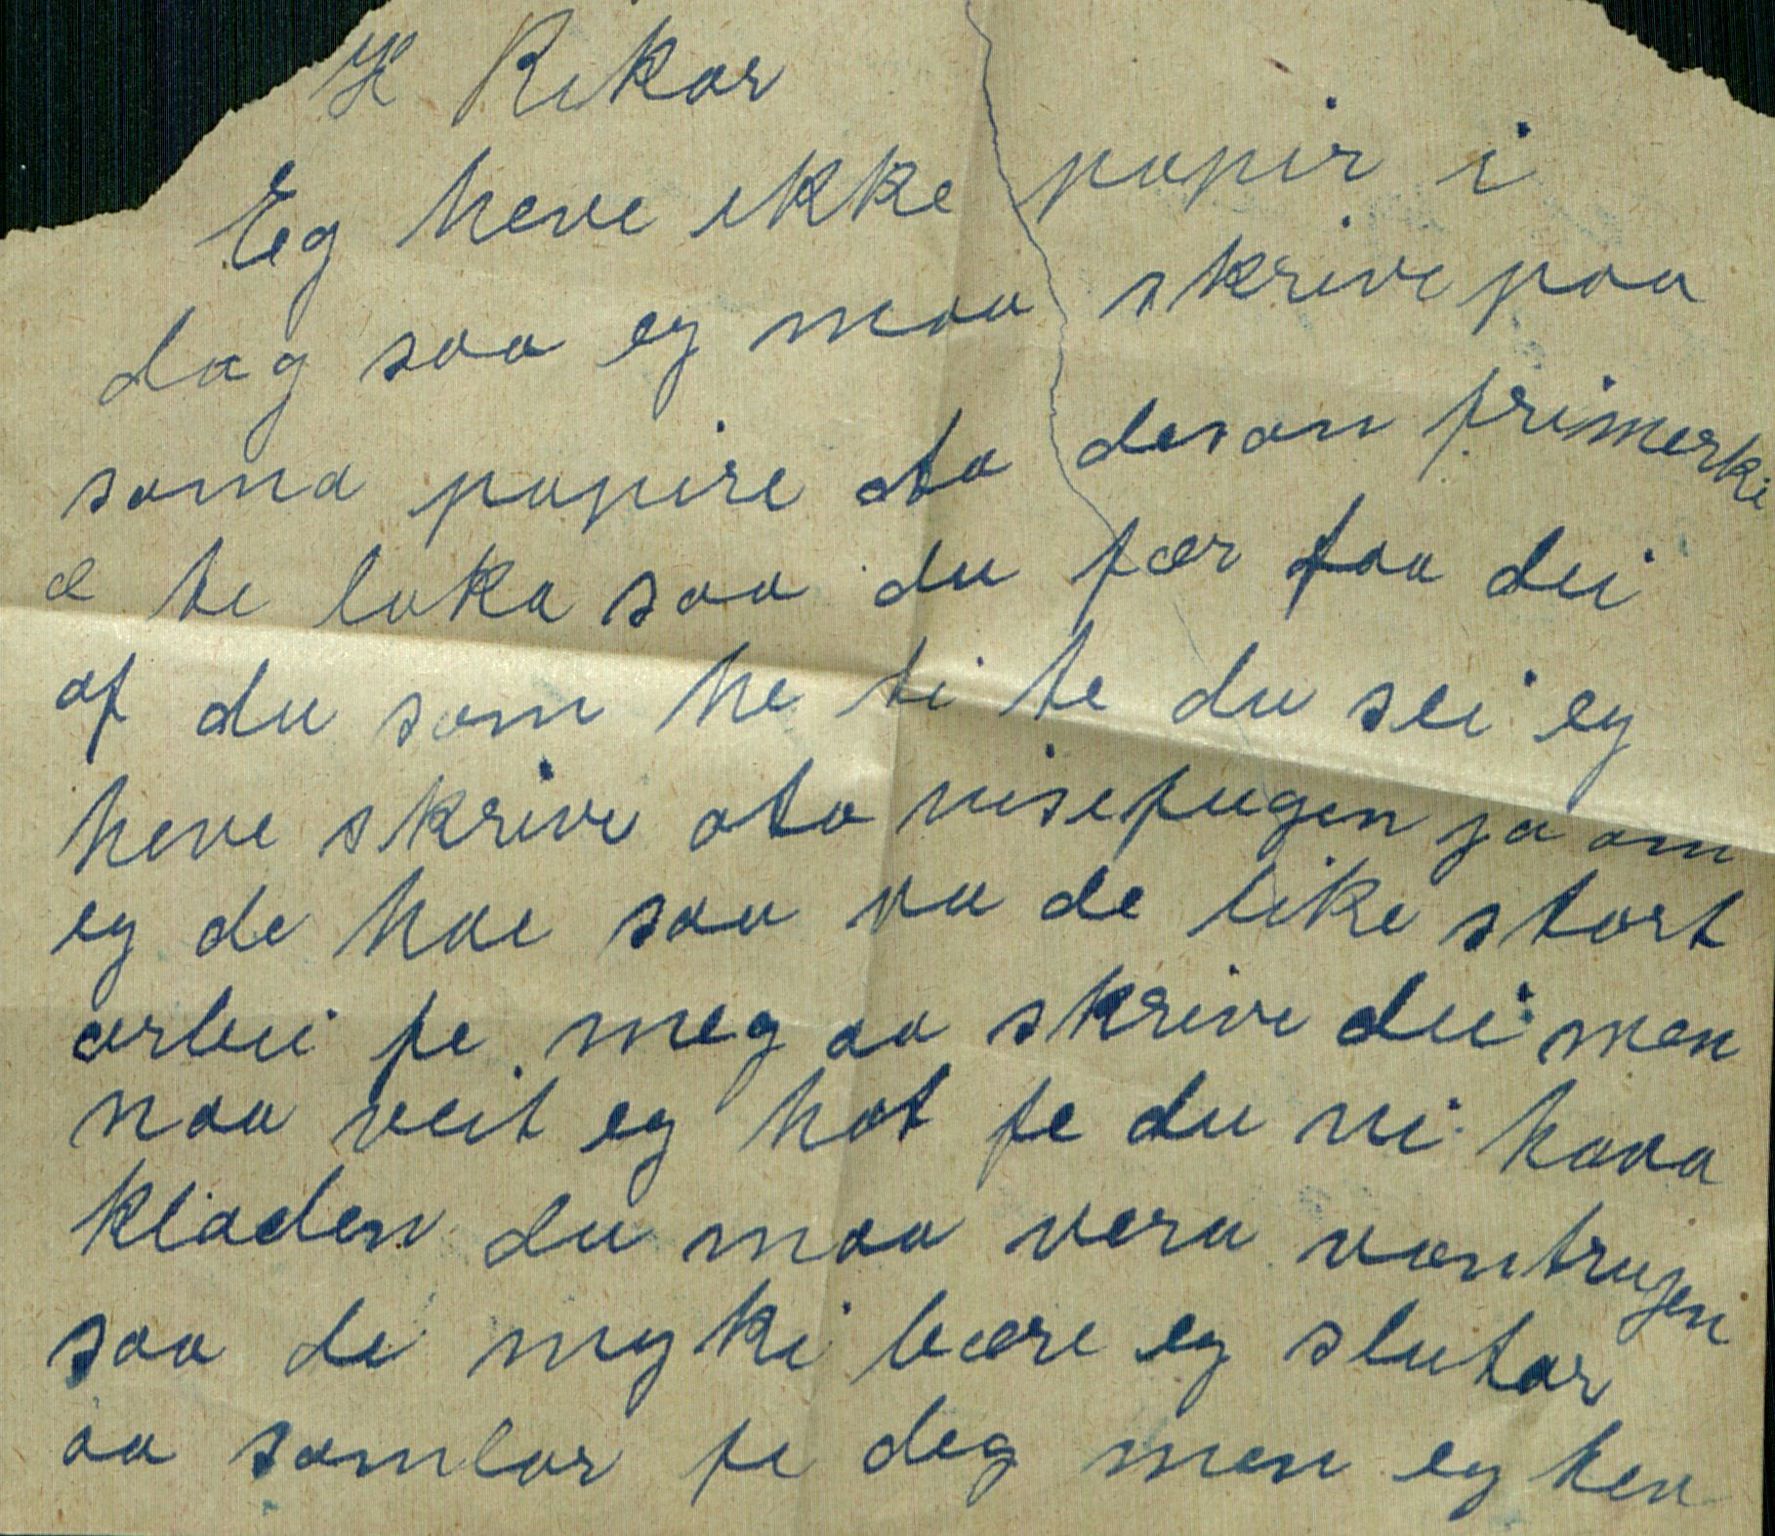 K Rikar
Eg heve ikke papir i
dag saa eg maa skrive paa
sama papire ata desan frimerki
æ te laka saa du fær faa dei
af du som he ti te du sei eg
heve skrive ata visefugen ja om
eg de hae saa va de like stort
arbei fe meg aa skrive dei men
naa veit eg hot fe du vi hava
kladen du maa vera vantrugen
saa de myki bære eg slutar
aa samlar fe deg men eg ken